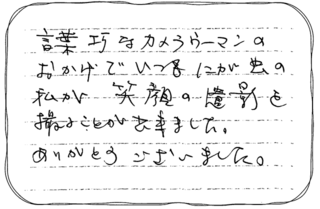 言葉巧なカメラウーマンの
おかげでいつもにが虫の
私が 笑顔の遺影を
撮ることが出来ました。
ありがとうございました。